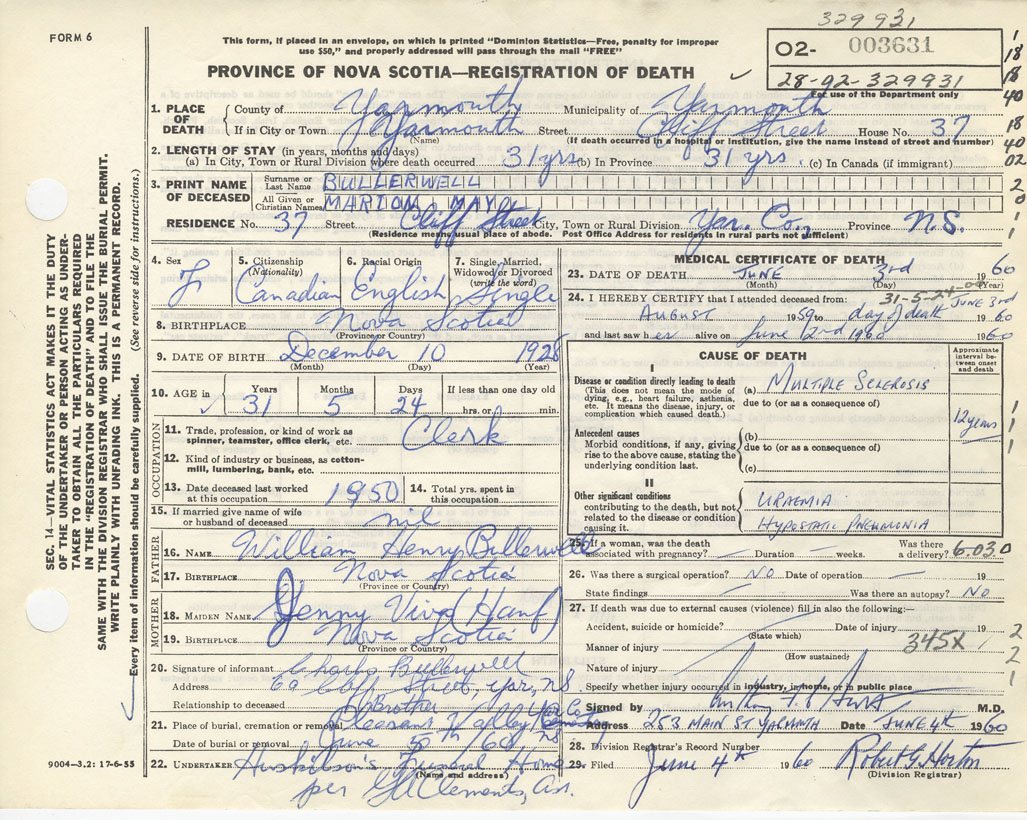 329931
FORM 6
This form, if placed in an envelope, on which is printed "Dominion Statistics—Free, penalty for improper
use $50," and properly addressed will pass through the mail "FREE"
02- 003631
28-02-329931
For use of the Department only
PROVINCE OF NOVA SCOTIA—REGISTRATION OF DEATH
1. PLACE OF DEATH
County of Yarmouth Municipality of Yarmouth
If in City or Town Yarmouth Street Cliff Street House No. 37
(Name) (If death occurred in a hospital or institution, give the name instead of street and number)
2. LENGTH OF STAY (in years, months and days)
(a) In City, Town or Rural Division where death occurred 31 yrs (b) In Province 31 yrs. (c) In Canada (if immigrant)
3. PRINT NAME OF DECEASED
Surname or Last Name BULLERWELL
All Given or Christian Names MARION MAY
RESIDENCE No. 37 Street Cliff Street City, Town or Rural Division Yar. Co., Province N.S.
(Residence means usual place of abode. Post Office Address for residents in rural parts not sufficient)
4. Sex F
5. Citizenship (Nationality) Canadian
6. Racial Origin English
7. Single, Married, Widowed or Divorced (write the word) Single
8. BIRTHPLACE Nova Scotia
(Province or Country)
9. DATE OF BIRTH December 10 1928
(Month) (Day) (Year)
10. AGE in Years Months Days If less than one day old
31 5 24 hrs. or min.
OCCUPATION
11. Trade, profession, or kind of work as spinner, teamster, office clerk, etc. Clerk
12. Kind of industry or business, as cotton-mill, lumbering, bank, etc.
13. Date deceased last worked at this occupation 1950
14. Total yrs. spent in this occupation
15. If married give name of wife or husband of deceased nil
FATHER
16. NAME William Henry Bullerwell
17. BIRTHPLACE Nova Scotia
(Province or Country)
MOTHER
18. MAIDEN NAME Jenny Viva (Hanf)
19. BIRTHPLACE Nova Scotia
(Province or Country)
20. Signature of informant Charles Bullerwell
Address 69 Cliff Street, Yar, NS
Relationship to deceased Brother
21. Place of burial, cremation or removal Pleasant Valley Yar Co
Date of burial or removal June 5th /60 NS
22. UNDERTAKER Huskilson's Funeral Home
(Name and address)
per Clements, Ass.
MEDICAL CERTIFICATE OF DEATH
23. DATE OF DEATH JUNE 3rd 1960
(Month) (Day) (Year)
31-5-24-0
24. I HEREBY CERTIFY that I attended deceased from:
AUGUST 1959 to day of death JUNE 3rd 1960
and last saw her alive on June 2nd 1960
CAUSE OF DEATH
Approximate interval between onset and death
I
Disease or condition directly leading to death
(This does not mean the mode of dying, e.g., heart failure, asthenia, etc. It means the disease, injury, or complication which caused death.)
(a) MULTIPLE SCLEROSIS
due to (or as a consequence of)
12 years
Antecedent causes
Morbid conditions, if any, giving rise to the above cause, stating the underlying condition last.
(b)
due to (or as a consequence of)
(c)
II
Other significant conditions
contributing to the death, but not related to the disease or condition causing it.
URAEMIA
HYPOSTATIC PNEUMONIA
25. If a woman, was the death associated with pregnancy? — Duration — weeks. Was there a delivery?
6030
26. Was there a surgical operation? NO Date of operation — 19
State findings — Was there an autopsy? NO
27. If death was due to external causes (violence) fill in also the following:—
Accident, suicide or homicide? Date of injury 19
(State which)
Manner of injury 345X
(How sustained)
Nature of injury
Specify whether injury occurred in industry, in home, or in public place
Signed by M.D.
Address 253 MAIN ST YARMOUTH Date JUNE 4th 1960
28. Division Registrar's Record Number
29. Filed June 4th 1960 Robert G. Horton
(Division Registrar)
SEC. 14—VITAL STATISTICS ACT MAKES IT THE DUTY
OF THE UNDERTAKER OR PERSON ACTING AS UNDER-
TAKER TO OBTAIN ALL THE PARTICULARS REQUIRED
IN THE "REGISTRATION OF DEATH" AND TO FILE THE
SAME WITH THE DIVISION REGISTRAR WHO SHALL ISSUE THE BURIAL PERMIT.
WRITE PLAINLY WITH UNFADING INK. THIS IS A PERMANENT RECORD.
Every item of information should be carefully supplied. (See reverse side for instructions.)
9004—3.2: 17-6-55
1
18
18
40
18
40
02
2
0
1
1
1
1
1
2
2
1